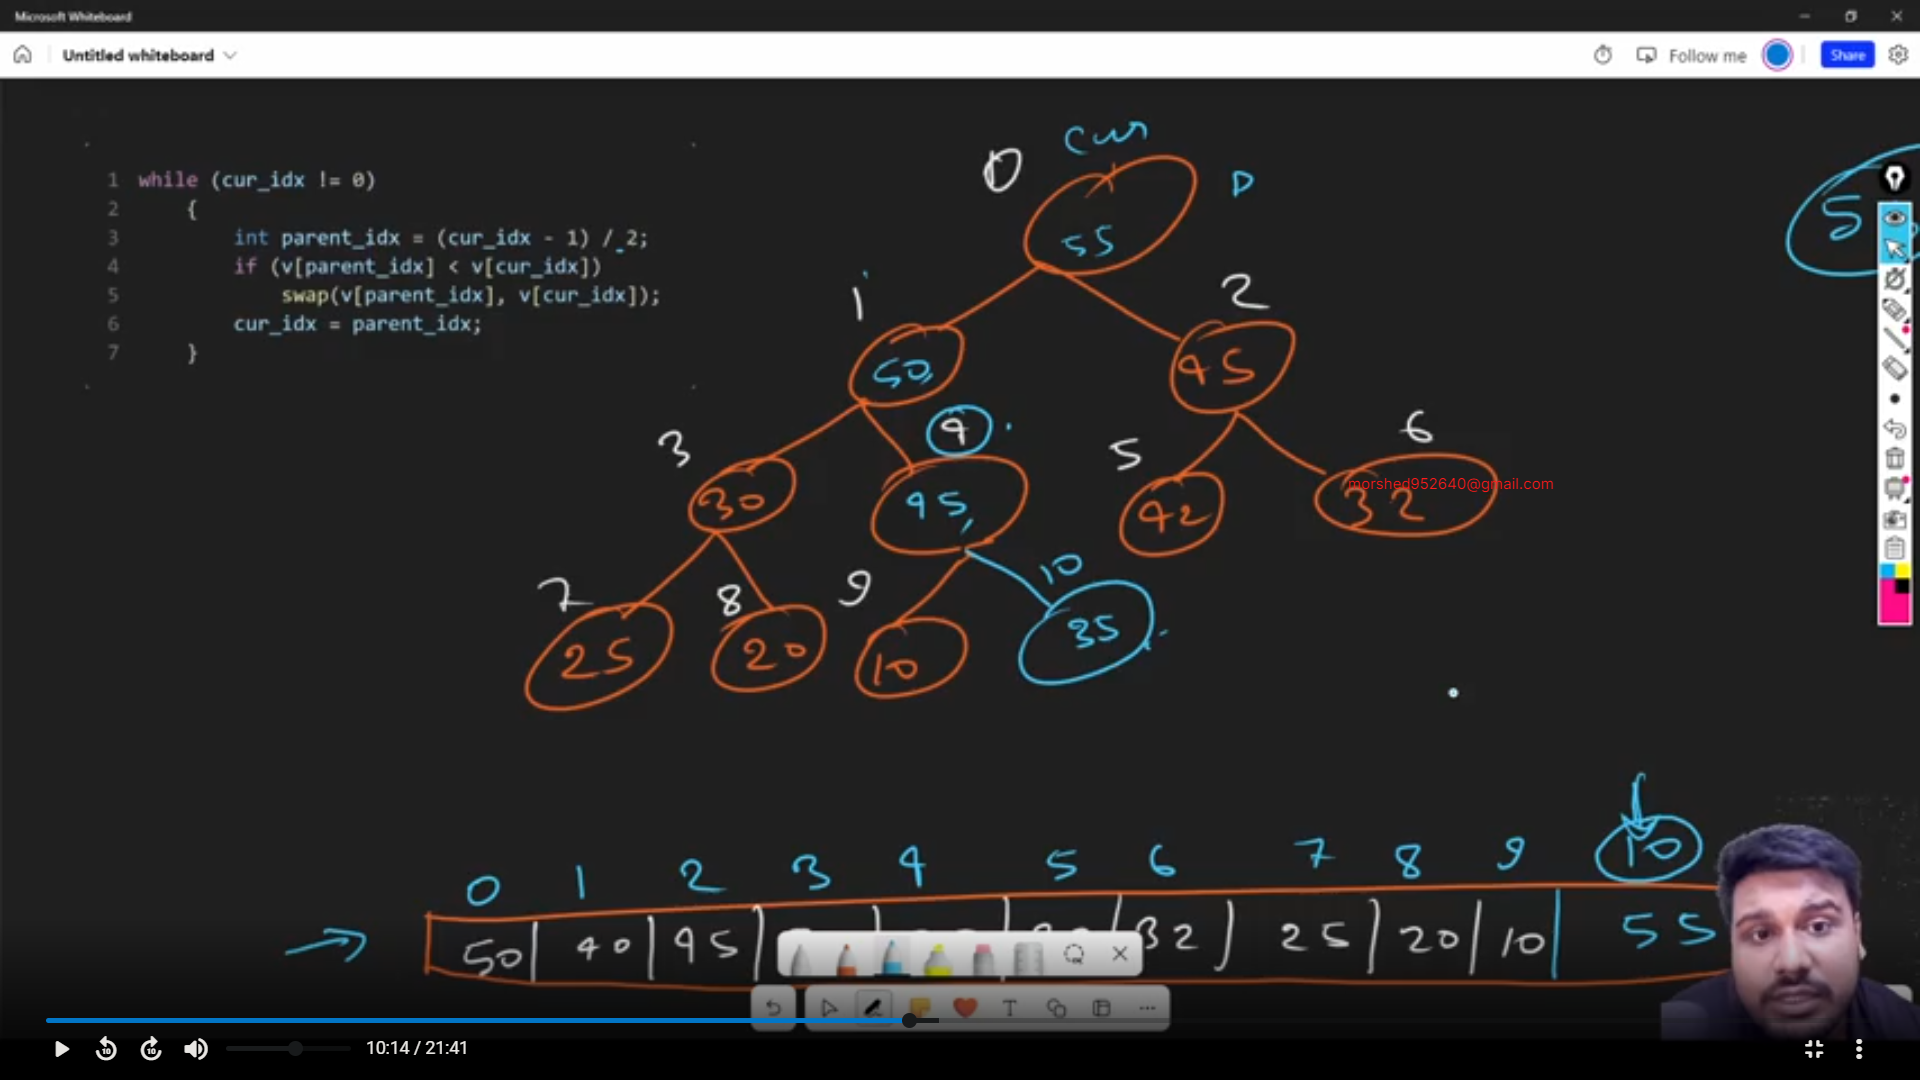 Microsoft Whiteboard
Untitled whiteboard
Follow me
Share
1 while (cur_idx != 0)
2 {
3 int parent_idx = (cur_idx - 1) / 2;
4 if (v[parent_idx] < v[cur_idx])
5 swap(v[parent_idx], v[cur_idx]);
6 cur_idx = parent_idx;
7 }
cur
0
55
P
5
1
50
2
45
3
30
4
45
5
42
6
32
morshed952640@gmail.com
7
25
8
20
9
10
10
35
0 1 2 3 4 5 6 7 8 9 10
50 40 45 32 25 20 10 55
T
10:14 / 21:41